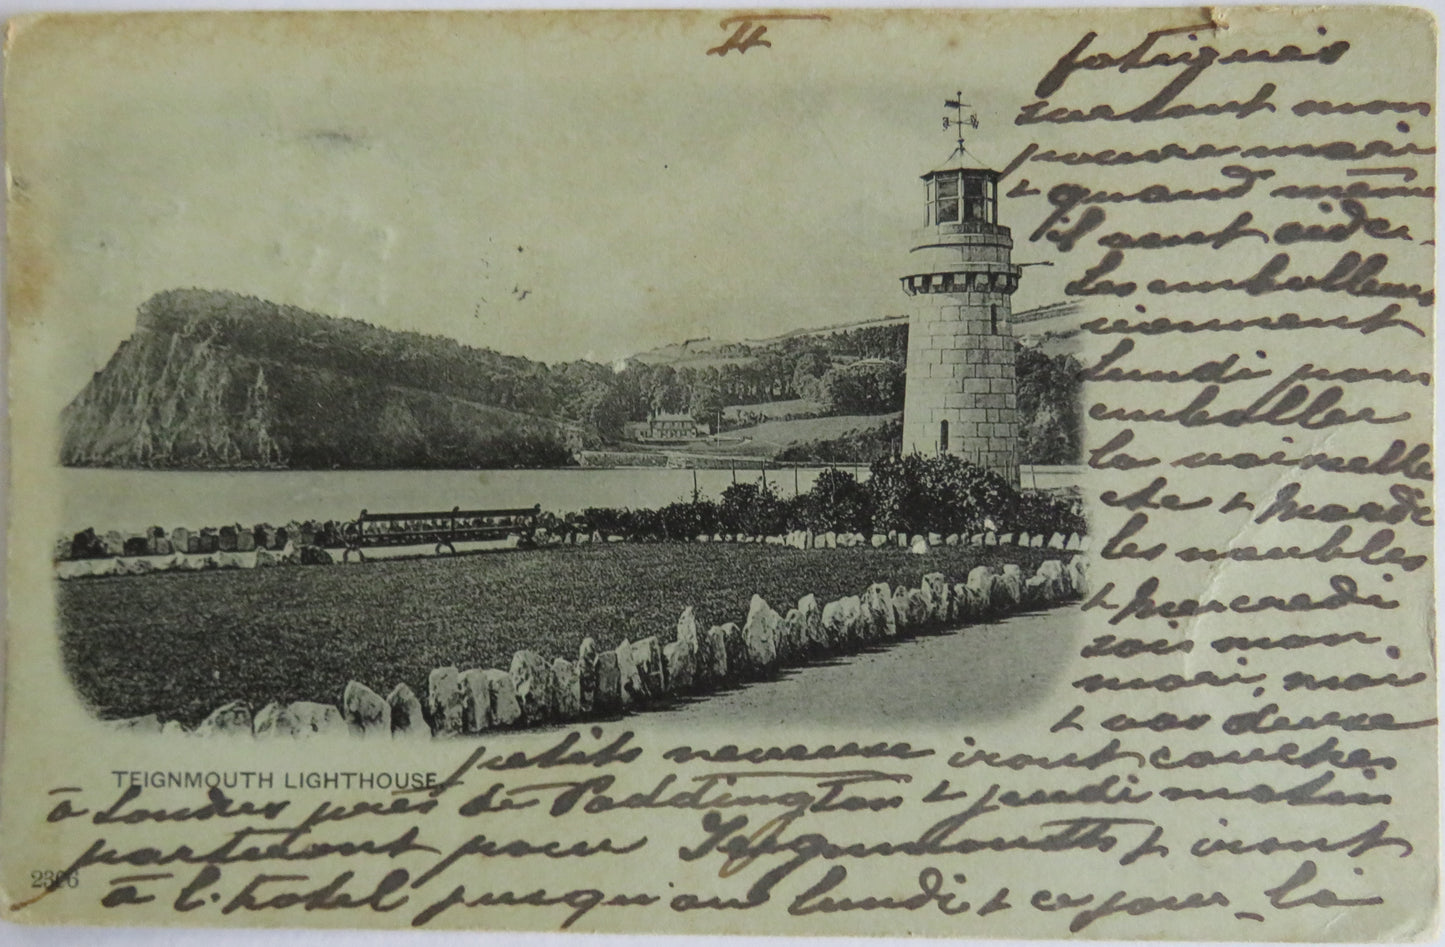 II
fatigués
surtout mon
pauvre mari
& quand même
il veut aider.
Les emballeurs
viennent
Lundi pour
emballer
la vaisselle
etc & Mardi
les meubles
& Mercredi
soir mon
mari, moi
& vos deux
petits neveux iront coucher
à Londres près de Paddington & jeudi matin
partiront pour Teignmouth & iront
à l'hotel jusqu'au lundi & ce jour-là
TEIGNMOUTH LIGHTHOUSE.
2326